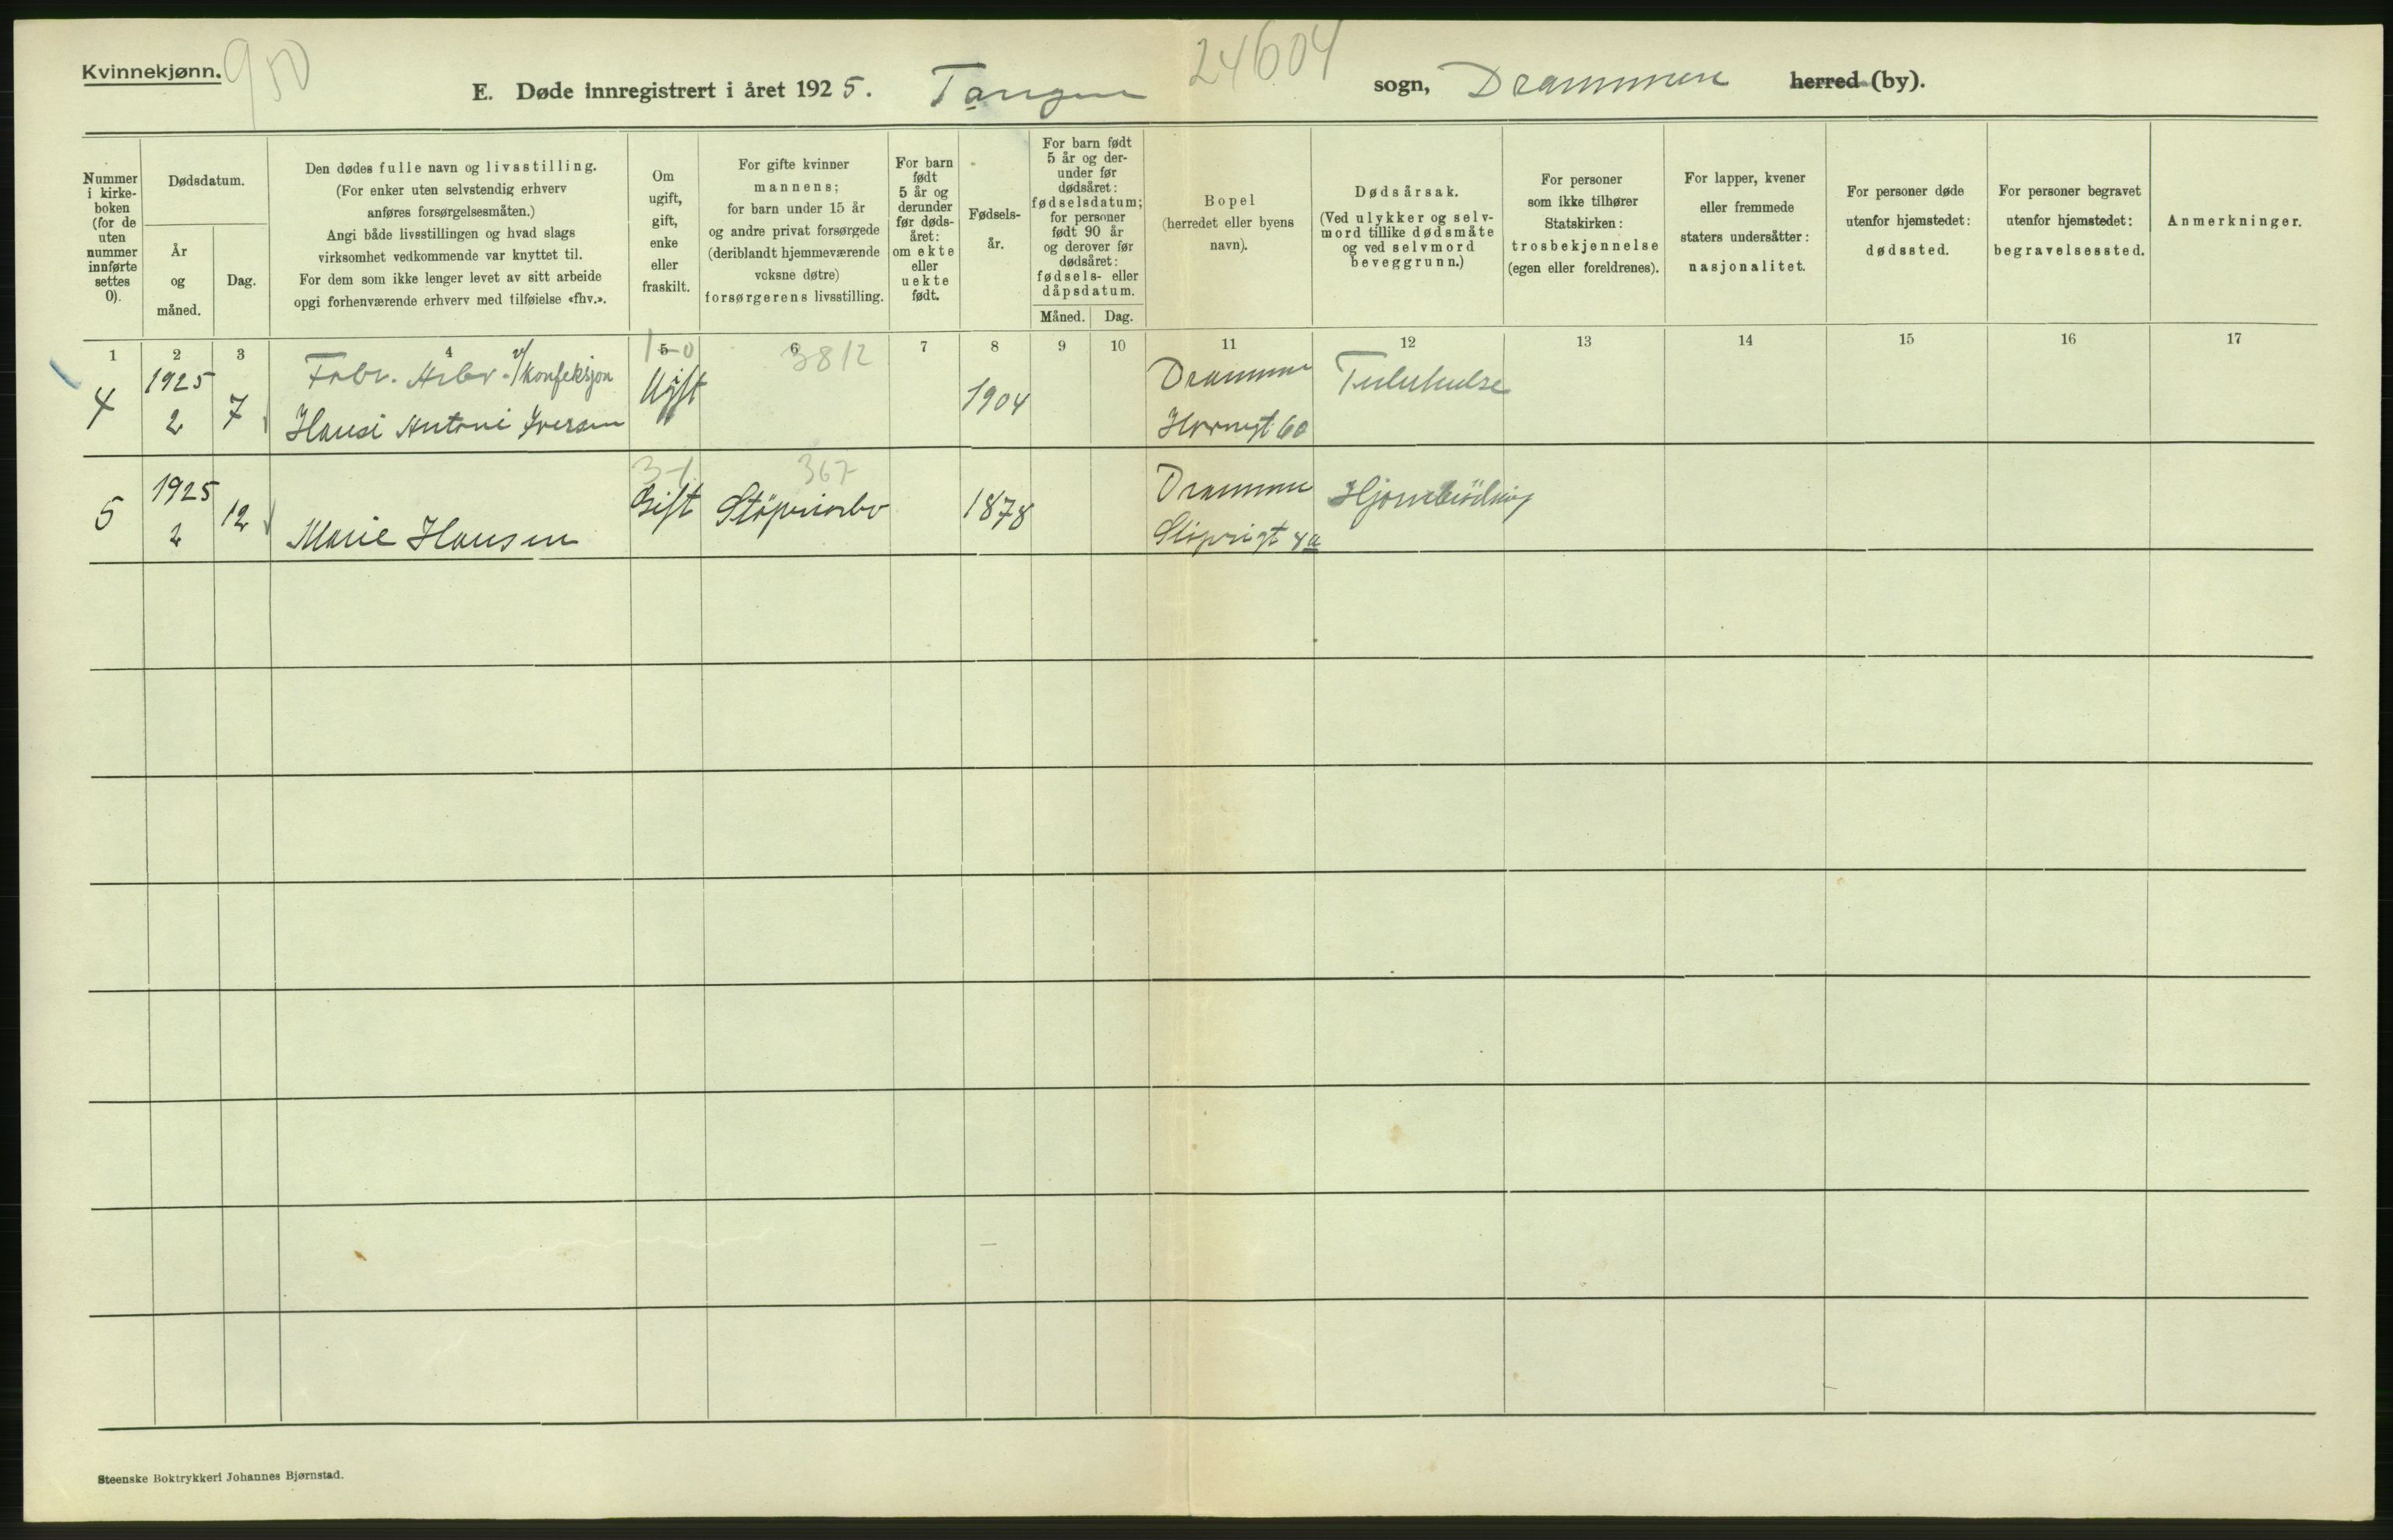 Kvinnekjønn. 950
24604
E. Døde innregistrert i året 1925. Tangen sogn, Drammen herred (by).
Nummer
i kirke-
boken
(for de
uten
nummer
innførte
settes
0).
Dødsdatum.
År
og
måned.
Dag.
Den dødes fulle navn og livsstilling.
(For enker uten selvstendig erhverv
anføres forsørgelsesmåten.)
Angi både livsstillingen og hvad slags
virksomhet vedkommende var knyttet til.
For dem som ikke lenger levet av sitt arbeide
opgi forhenværende erhverv med tilføielse «fhv.».
Om
ugift,
gift,
enke
eller
fraskilt.
For gifte kvinner
mannens;
for barn under 15 år
og andre privat forsørgede
(deriblandt hjemmeværende
voksne døtre)
forsørgerens livsstilling.
For barn
født
5 år og
derunder
før døds-
året:
om ekte
eller
uekte
født.
Fødsels-
år.
For barn født
5 år og der-
under før
dødsåret:
fødselsdatum;
for personer
født 90 år
og derover før
dødsåret:
fødsels- eller
dåpsdatum.
Måned. Dag.
Bopel
(herredet eller byens
navn).
Dødsårsak.
(Ved ulykker og selv-
mord tillike dødsmåte
og ved selvmord
beveggrunn.)
For personer
som ikke tilhører
Statskirken:
trosbekjennelse
(egen eller foreldrenes).
For lapper, kvener
eller fremmede
staters undersåtter:
nasjonalitet.
For personer døde
utenfor hjemstedet:
dødssted.
For personer begravet
utenfor hjemstedet:
begravelsessted.
Anmerkninger.
1 2 3 4 5 6 7 8 9 10 11 12 13 14 15 16 17
1-0 3812
4
1925
2
7
Fabr. Arb. v/Konfeksjon
Hansi Antoni Iversen
Ugift
1904
Drammen
60
Tuberkulose
3-1 367
5
1925
2
12
Marie Hansen
Gift
Støperiarb
1878
Drammen
Støperigt 4a